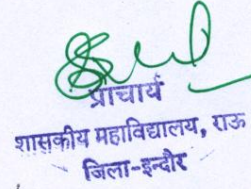 प्राचार्य
शासकीय महाविद्यालय, राऊ
जिला-इन्दौर